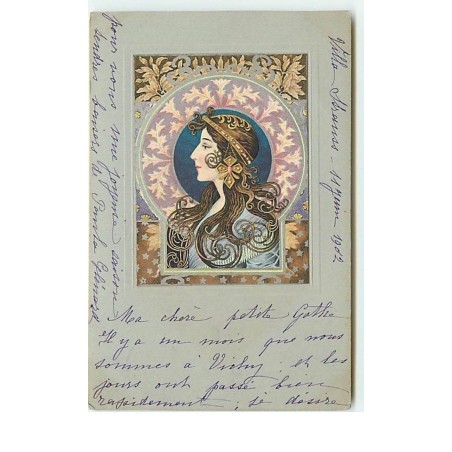 Villa Strauss - 11 Juin 1902
Ma chère petite
Il y a un mois que nous
sommes à Vichy et les
jours ont passé bien
rapidement, je désire
pour vous une joyeuse saison
tendres baisers de